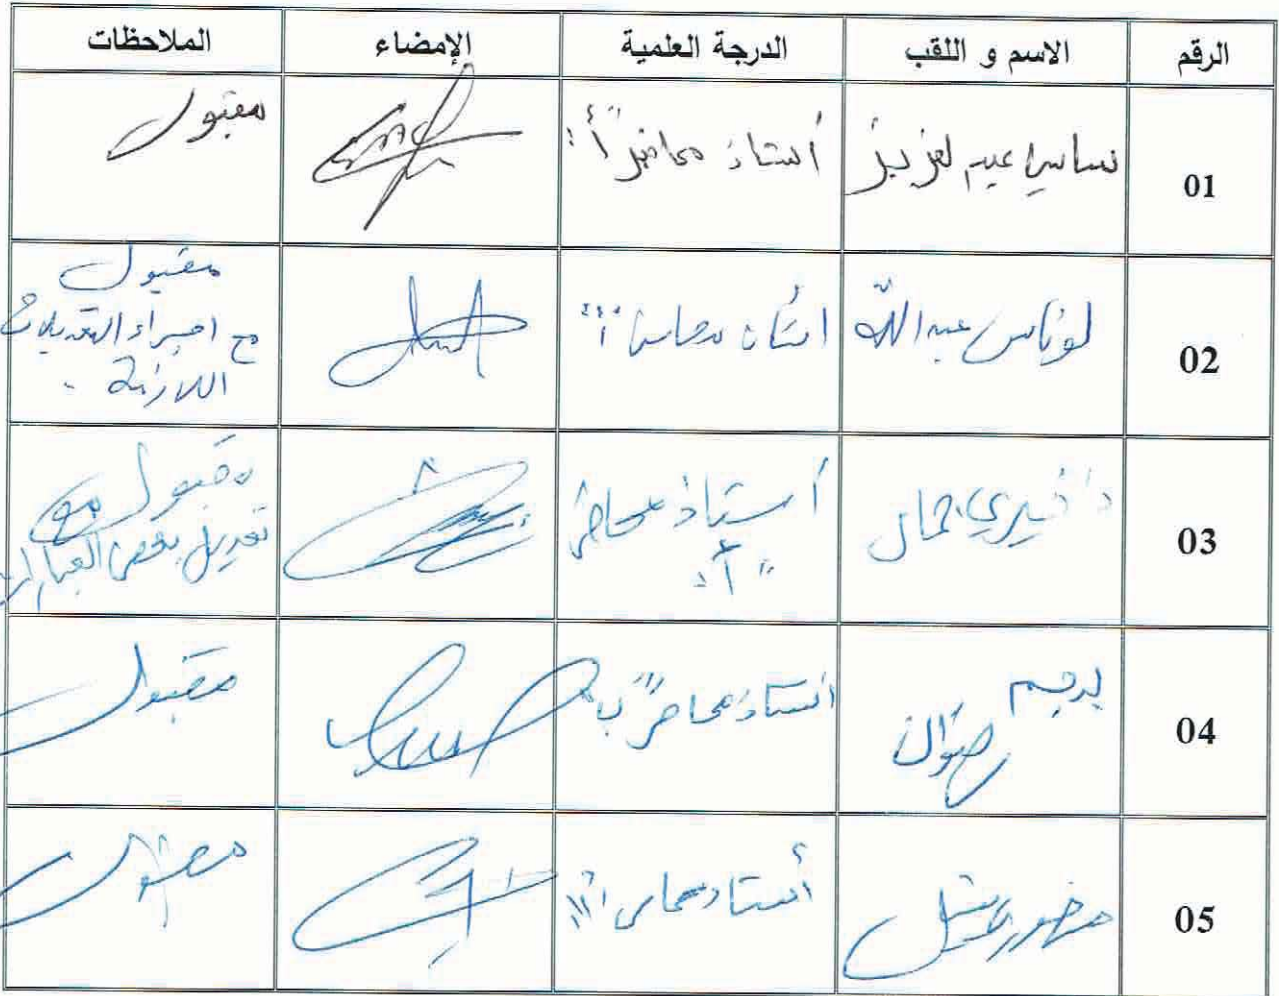 الرقم الاسم و اللقب الدرجة العلمية الإمضاء الملاحظات
01 نساسي عبد لعزيز أستاذ محاضر "أ" مقبول
02 لوناس عبد الله استاذ محاضر "أ" مقبول
مع اجراء التعديلات
اللازمة .
03 جمال أستاذ محاضر مقبول مع
"أ" تعديل بعض العبارات
04 رضوان استاذ محاضر "ب" مقبول
05 أستاذ محاضر "أ" مقبول